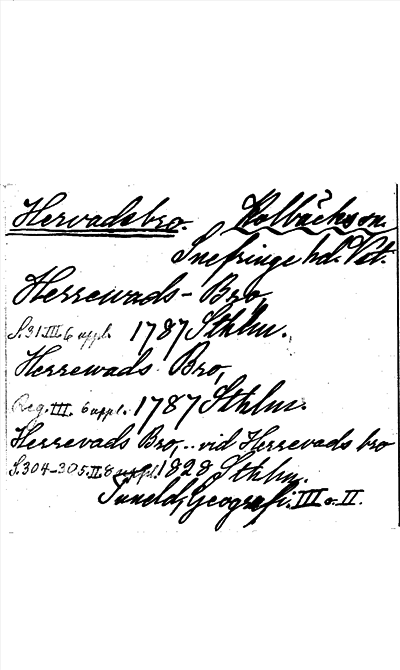 Hervadsbro. Kolbäcks sn.
Snefringe hd. Vst.
Herrewads-Bro,
S. 31. III. 6 uppl. 1787 Sthlm.
Herrewads Bro,
Reg. III. 6 uppl. 1787 Sthlm.
Herrevads Bro,.. vid Herrevads bro
S. 304-305. II. 8 uppl. 1828 Sthlm.
Tuneld, Geografi. III o. II.